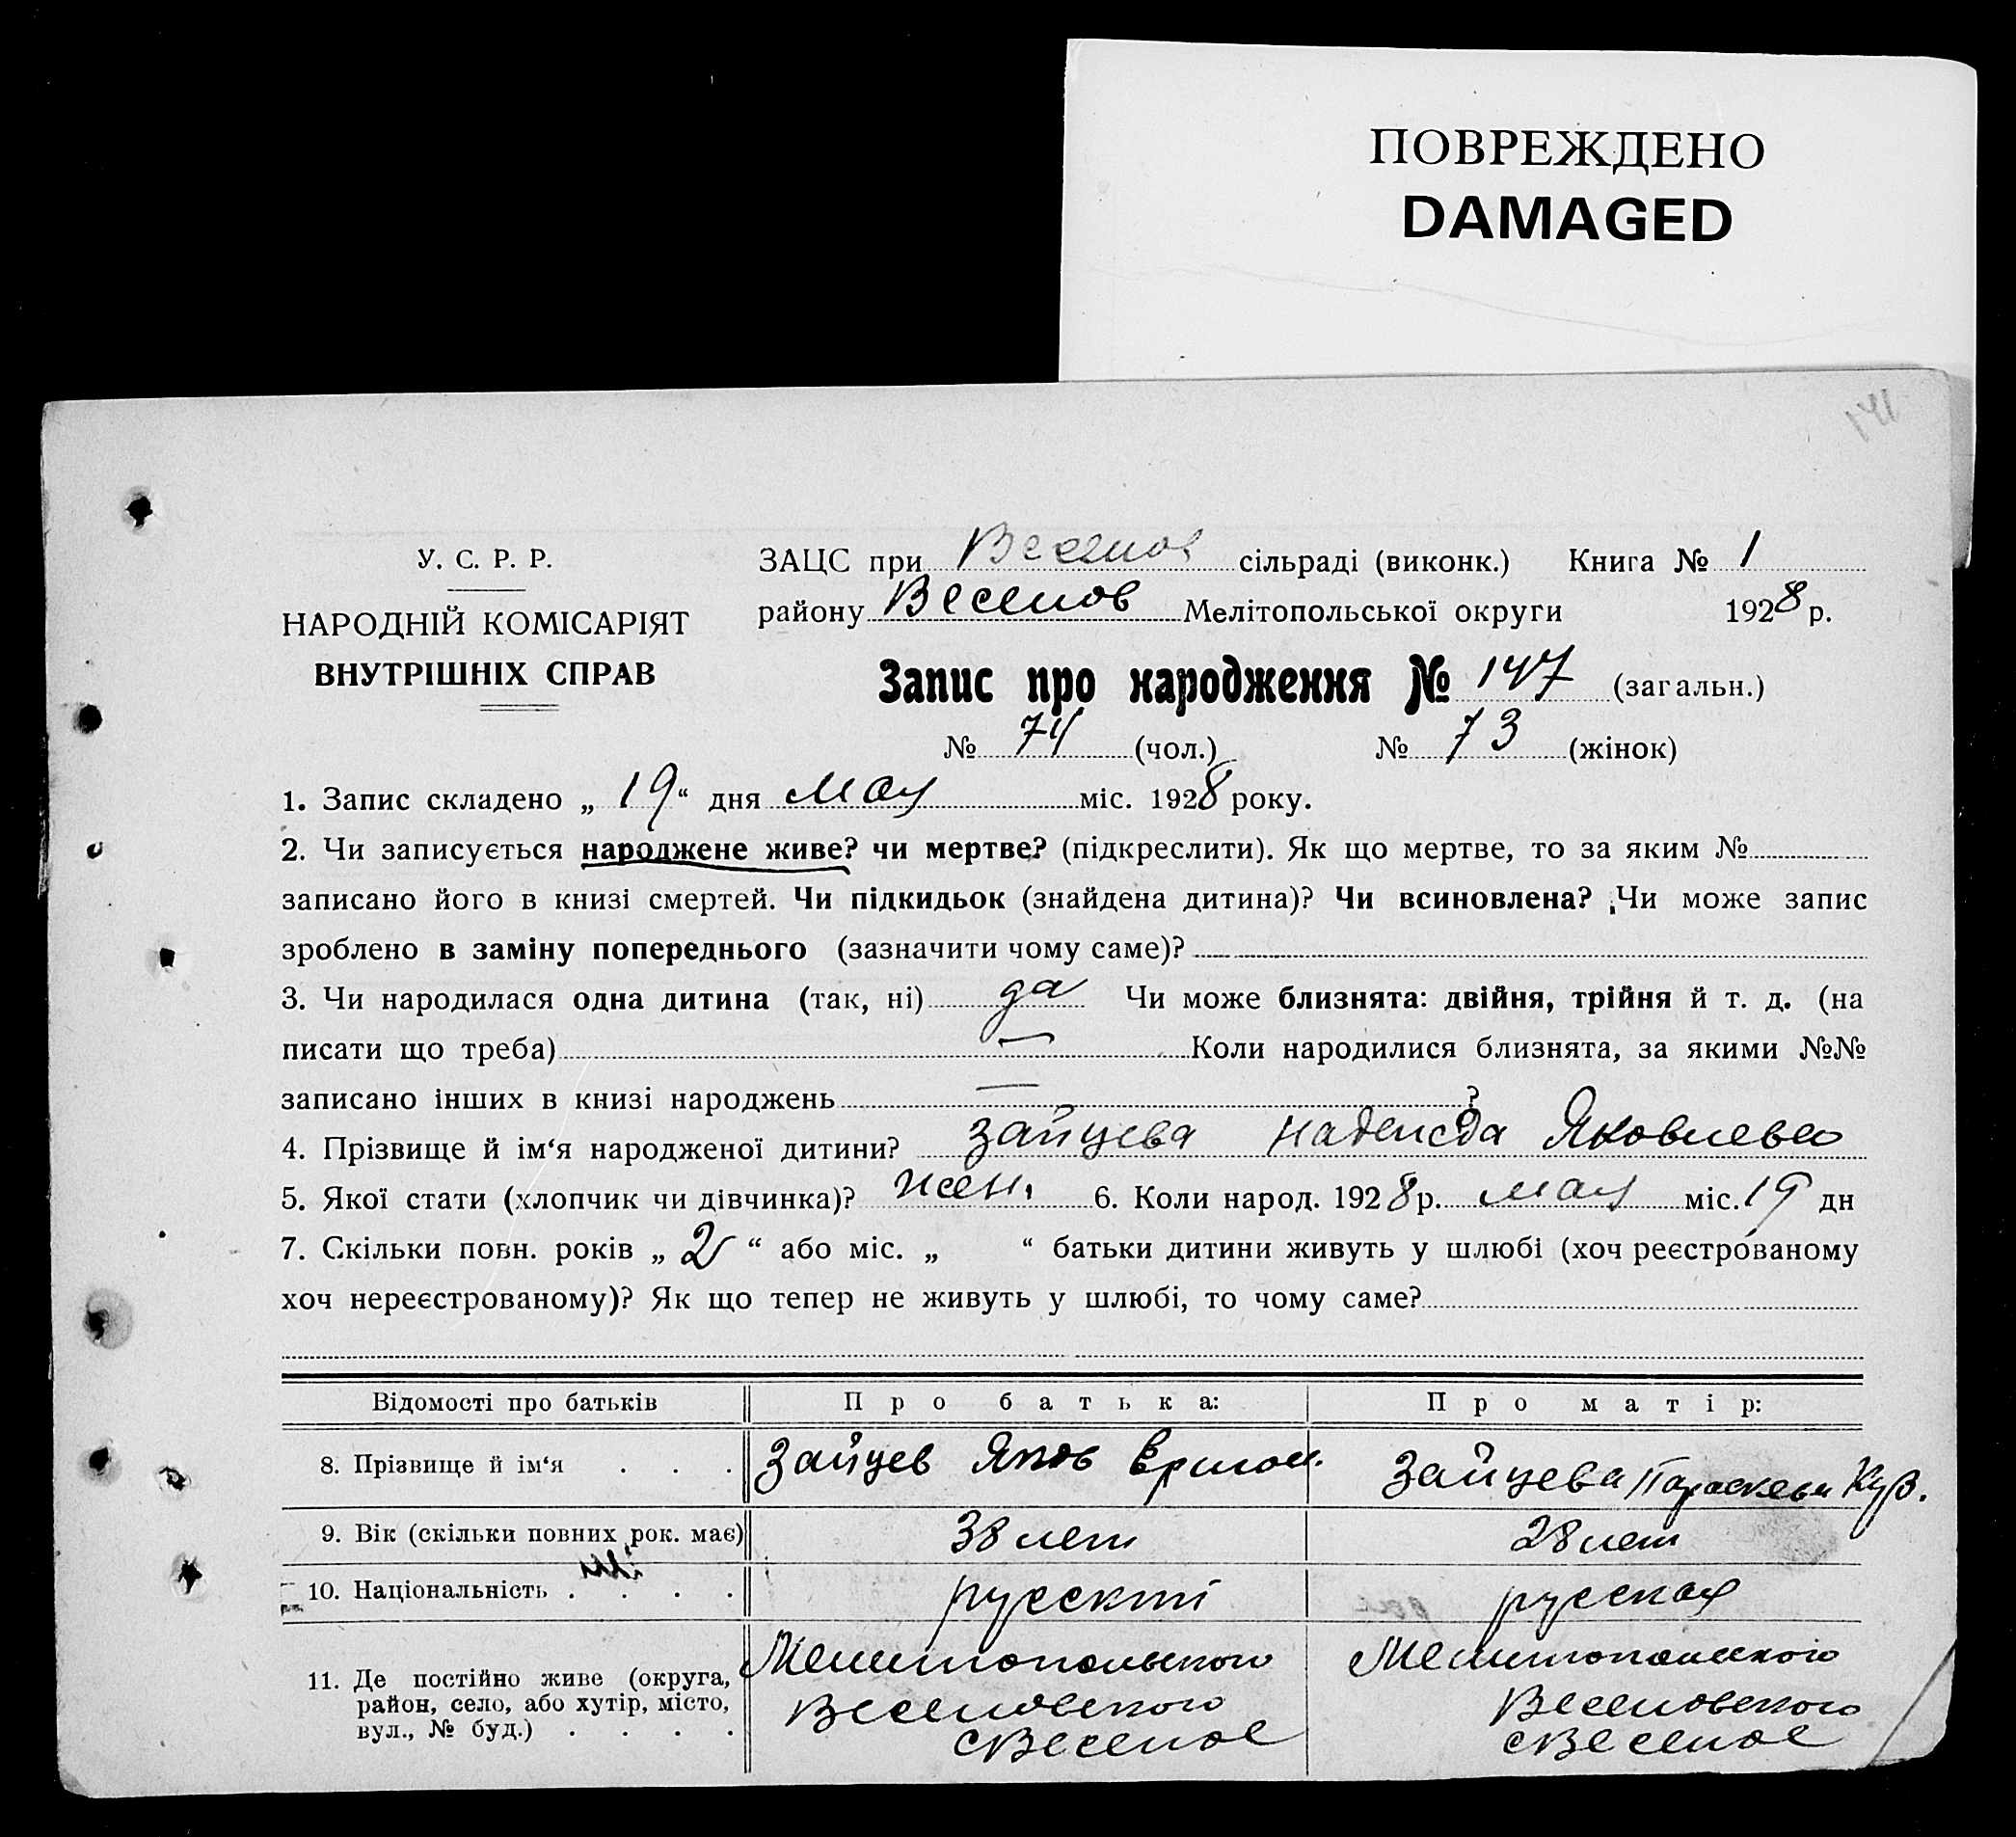 ПОВРЕЖДЕНО
DAMAGED
У. С. Р. Р.
НАРОДНІЙ КОМІСАРІЯТ
ВНУТРІШНІХ СПРАВ
ЗАЦС при Веселов сільраді (виконк.) Книга № 1
району Веселов Мелітопольської округи 1928 р.
Запис про народження № 147 (загальн.)
№ 74 (чол.) № 73 (жінок)
1. Запис складено „ 19 “ дня мая міс. 1928 року.
2. Чи записується народжене живе? чи мертве? (підкреслити). Як що мертве, то за яким №
записано його в книзі смертей. Чи підкидьок (знайдена дитина)? Чи всиновлена? Чи може запис
зроблено в заміну попереднього (зазначити чому саме)?
3. Чи народилася одна дитина (так, ні) да Чи може близнята: двійня, трійня й т. д. (на
писати що треба) — Коли народилися близнята, за якими №№
записано інших в книзі народжень — ?
4. Прізвище й ім‘я народженої дитини? Зайцева Надежда Яковлевна
5. Якої стати (хлопчик чи дівчинка)? жен. 6. Коли народ. 1928 р. мая міс. 19 дн
7. Скільки повн. років „ 2 “ або міс. „ “ батьки дитини живуть у шлюбі (хоч реєстрованому
хоч нереєстрованому)? Як що тепер не живуть у шлюбі, то чому саме?
Відомості про батьків Про батька: Про матір:
8. Прізвище й ім‘я . . . Зайцев Яков Зайцева Параскева Куз.
9. Вік (скільки повних рок. має) 38 лет 28 лет
10. Національність . . . . русский русская
11. Де постійно живе (округа,
район, село, або хутір, місто,
вул., № буд.) . . . .
Мелитопольского
Веселовского
с Веселое
Мелитопольского
Веселовского
с Веселое